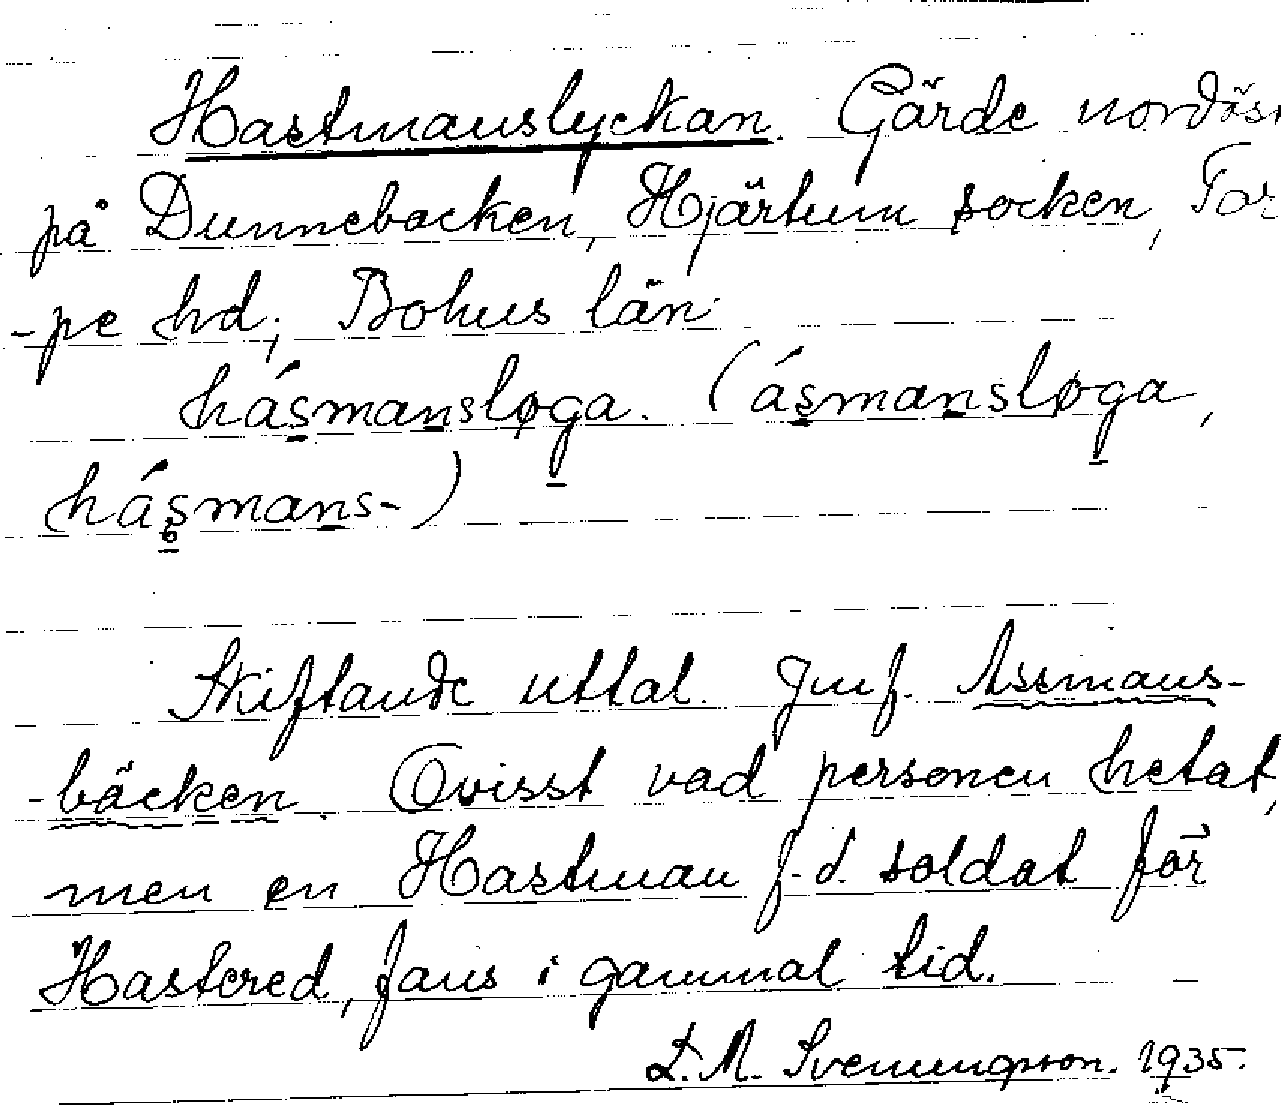 Hastmanslyckan. Gärde nordöst
på Dunnebacken, Hjärtum socken, Tor
-pe hd, Bohus län.
hásmansløga. (ásmansløga,
hásmans-)
Skiftande uttal. Jmf. Assmans-
-bäcken. Ovisst vad personen hetat,
men en Hastman f.d. soldat för
Hastered, fans i gammal tid.
L. M. Svenungsson. 1935.